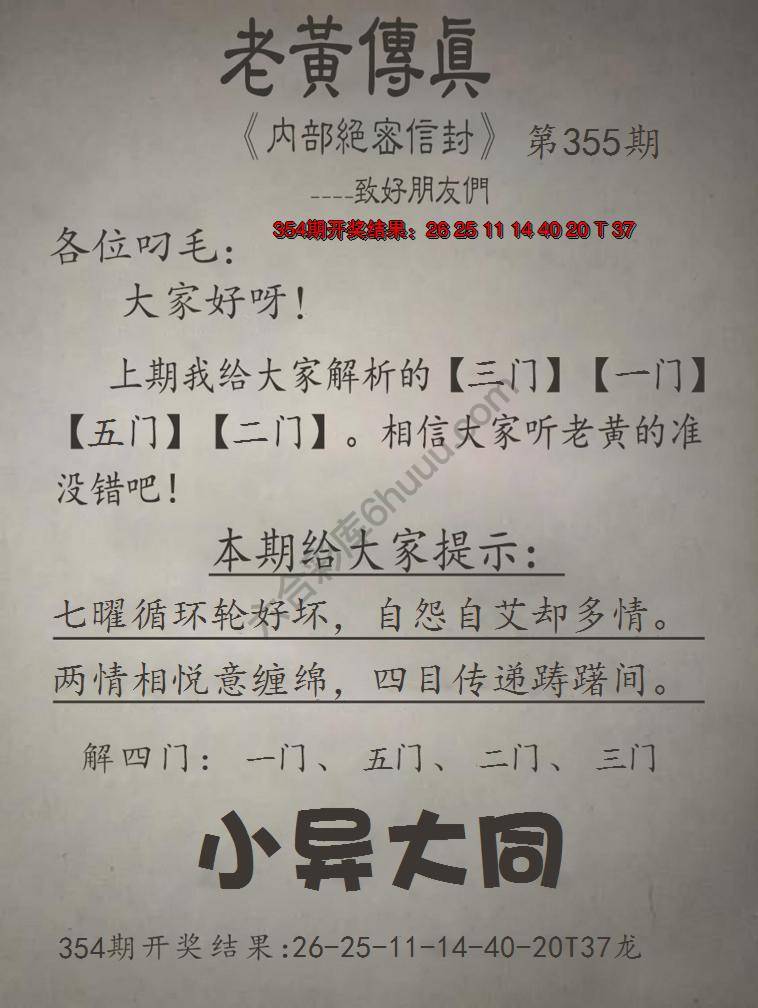 老黃傳眞
《内部絕密信封》 第355期
----致好朋友們
354期开奖结果：26 25 11 14 40 20 T 37
各位叼毛：
大家好呀！
上期我给大家解析的【三门】【一门】
【五门】【二门】。相信大家听老黄的准
没错吧！
本期给大家提示：
七曜循环轮好坏，自怨自艾却多情。
两情相悦意缠绵，四目传递踌躇间。
解四门：一门、五门、二门、三门
小异大同
354期开奖结果:26-25-11-14-40-20T37龙
六合彩库6huuu.com